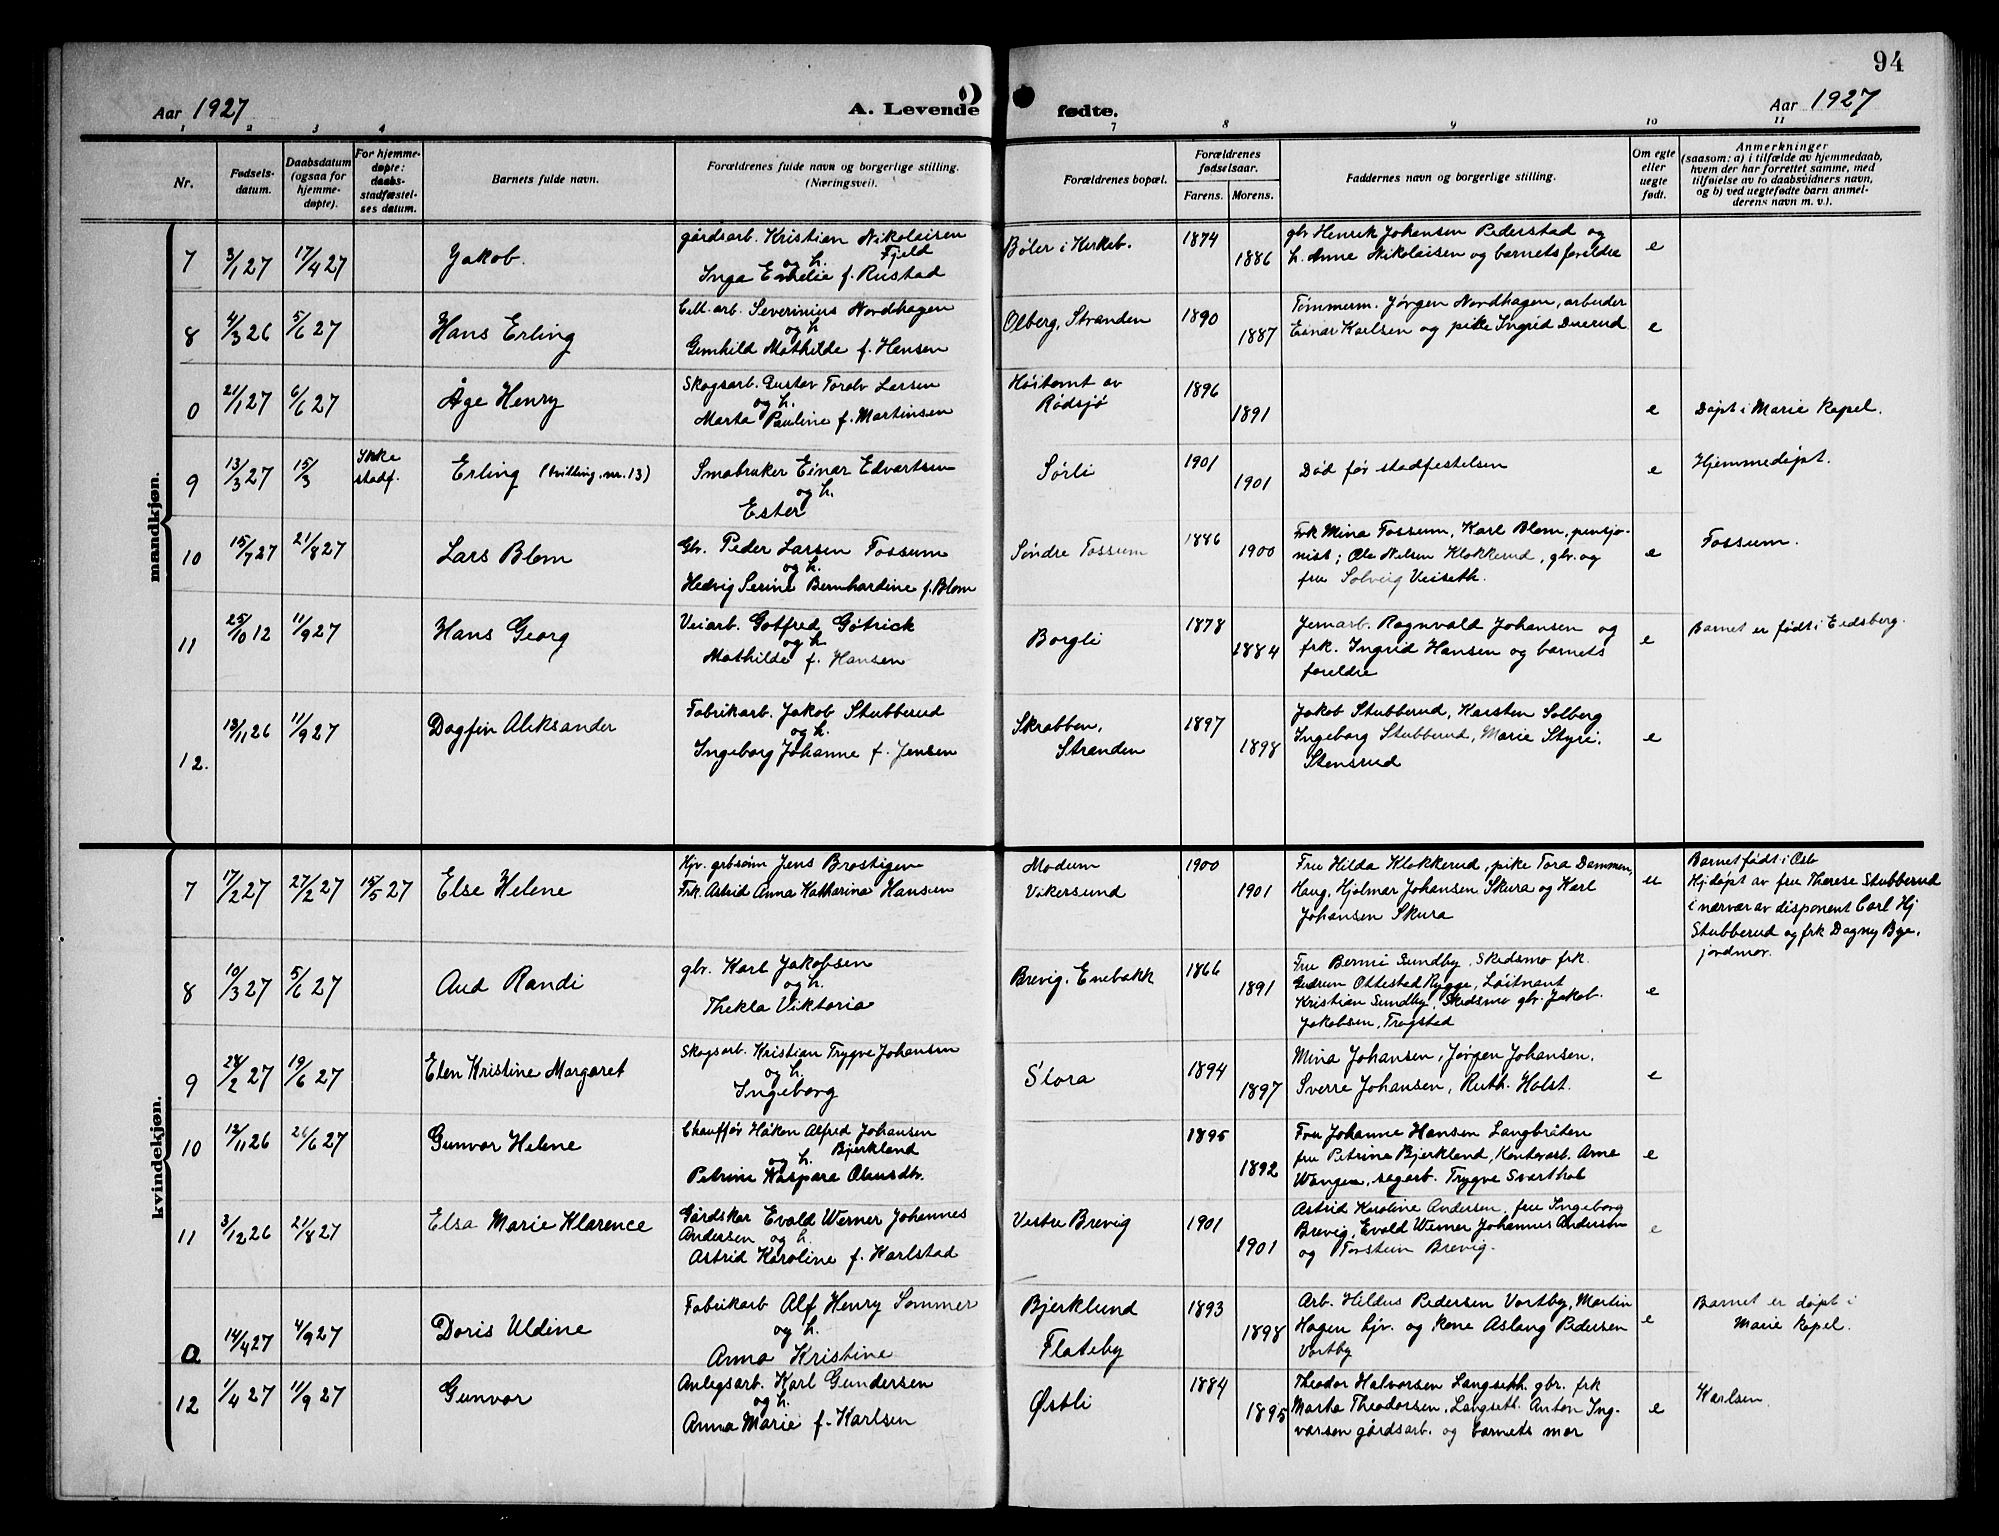 94
Aar 1927
A. Levende
fødte.
Aar 1927
1 2 3 4 7 8 9 10 11
Nr.
Fødsels-
datum.
Daabsdatum
(ogsaa for
hjemme-
døpte).
For hjemme-
døpte:
daabs-
stadfæstel-
ses datum.
Barnets fulde navn.
Forældrenes fulde navn og borgerlige stilling.
(Næringsvei).
Forældrenes bopæl.
Forældrenes
fødselsaar.
Farens. Morens.
Faddernes navn og borgerlige stilling.
Om egte
eller
uegte
født.
Anmerkninger
(saasom: a) i tilfælde av hjemmedaab,
hvem der har forrettet samme, med
tilføielse av to daabsvidners navn,
og b) ved uegtefødte barn anmel-
derens navn m. v.).
mandkjøn.
7 3/1 27 17/4 27 Jakob.
gårdsarb. Kristian Nikolaisen
Fjeld
og h.
Inga Emelie f. Rustad
Bøler i Kirkeb.
1874 1886
gbr Henrik Johansen Pederstad og
h. Anne Nikolaisen og barnets foreldre
e
8 4/3 26 5/6 27 Hans Erling
Cell.arb. Severinius Nordhagen
og h
Gunhild Mathilde f. Hansen
Olberg, Stranden
1890 1887
Tømmerm. Jørgen Nordhagen, arbeider
Einar Karlsen og pike Ingrid Duerud
e
0 21/1 27 6/6 27 Åge Henry
Skogsarb. Gustav Toralv Larsen
og h.
Marta Pauline f. Martinsen
Høitomt av
Rødsjø
1896 1891
e
Døpt i Marie kapel.
9 13/3 27 15/3 Ikke
stadf.
Erling (tvilling. nr. 13)
Småbruker Einar Edvartsen
og h.
Ester
Sørli
1901 1901
Død før stadfestelsen
e
Hjemmedøpt.
10 15/7 27 21/8 27 Lars Blom
Gbr. Peder Larsen Fossum
og h.
Hedvig Serine Bernhardine f. Blom
Søndre Fossum
1886 1900
Frk Mina Fossum, Karl Blom, pensjo-
nist; Ole Nilsen Klokkerud, gbr. og
fru Solveig Veiseth.
e
Fossum.
11 25/10 12 11/9 27 Hans Georg
Veiarb. Gotfred Götrick
og h
Mathilde f. Hansen
Borgli
1878 1884
Jernarb. Ragnvald Johansen og
frk. Ingrid Hansen og barnets
foreldre
e
Barnet er født i Eidsberg.
12. 13/11 26 11/9 27 Dagfin Aleksander
Fabrikarb. Jakob Stubberud
og h.
Ingeborg Johanne f. Jensen
Skrabben,
Stranden
1897 1898
Jakob Stubberud, Karsten Solberg
Ingeborg Stubberud, Marie Styri,
Stensrud
e
kvindekjøn.
7 17/2 27 27/2 27 15/5 27 Else Helene
Hjv. grbsønn Jens Brostigen
Frk. Astrid Anna Katharina Hansen
Modum
Vikersund
1900 1901
Fru Hilda Klokkerud, pike Tora Dammen,
Haug, Hjalmar Johansen Skura og Karl
Johansen Skura
u
Barnet født i Oslo
Hj.døpt av fru Therese Stubberud
i nærvær av disponent Carl Hj
Stubberud og frk Dagny Bye,
jordmor.
8 10/3 27 5/6 27 Aud Randi
gbr. Karl Jakobsen
og h.
Thekla Viktoria
Brevig, Enebakk
1866 1891
Fru Berni Sundby. Skedsmo frk.
Gudrun Ottestad Rygge, Løitnant
Kristian Sundby, Skedsmo gbr. Jakob.
Jakobsen, Trøgstad
e
9 28/2 27 19/6 27 Elen Kristine Margaret
Skogsarb. Kristian Trygve Johansen
og h.
Ingeborg
Slora
1894 1897
Mina Johansen, Jørgen Johansen,
Sverre Johansen, Ruth. Holst.
e
10 12/11 26 26/6 27 Gunvor Helene
Chauffør Håkon Alfred Johansen
Bjerklund
og h.
Petrine Kaspara Olausdtr.
1895 1892
Fru Johanne Hansen Langbråten
fru Petrine Bjerklund, Kontorarb. Arne
Wangen, sagarb. Trygve Svarthol
e
11 3/12 26 21/8 27 Elsa Marie Klarence
Gårdskar Evald Werner Johannes
Andersen og h.
Astrid Karoline f. Karlstad
Vestre Brevig
1901 1901
Astrid Karoline Andersen, fru Ingeborg
Brevig, Evald Werner Johannes Andersen
og Torstein Brevig.
e
0 14/4 27 4/9 27 Doris Uldine
Fabrikarb Alf Henry Sommer
og h.
Anna Kristine
Bjerklund
Flateby
1893 1898
Arb. Hildus Pedersen Vortby, Martin
Hagen hjv. og kone Aslaug Pedersen
Vortby
e
Barnet er døpt i
Marie kapel.
12 1/4 27 11/9 27 Gunvor
Anlegsarb. Karl Gundersen
og h
Anna Marie f. Karlsen
Østli
1884 1895
Theodor Halvorsen Langseth. gbr. frk
Marta Theodorsen, Langseth. Anton Ing-
varsen gårdsarb. og barnets mor
e
Karlsen.